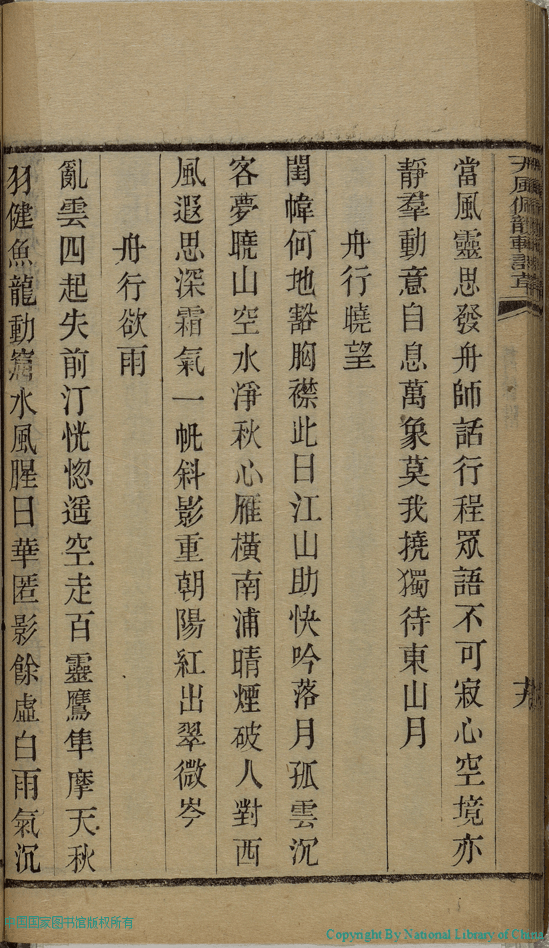 當風靈思發舟師話行程眾語不可寂心空境亦
靜羣動意自息萬象莫我撓獨待東山月
舟行曉望
閨幃何地豁胸襟此日江山助快吟落月孤雲沉
客夢曉山空水淨秋心雁橫南浦晴煙破人對西
風遐思深霜氣一帆斜影重朝陽紅出翠微岑
舟行欲雨
亂雲四起失前汀恍惚遥空走百靈鷹隼摩天秋
羽健魚龍動窟水風腥日華匿影餘虛白雨氣沉
中国国家图书馆版权所有
Copyright By National Library of China